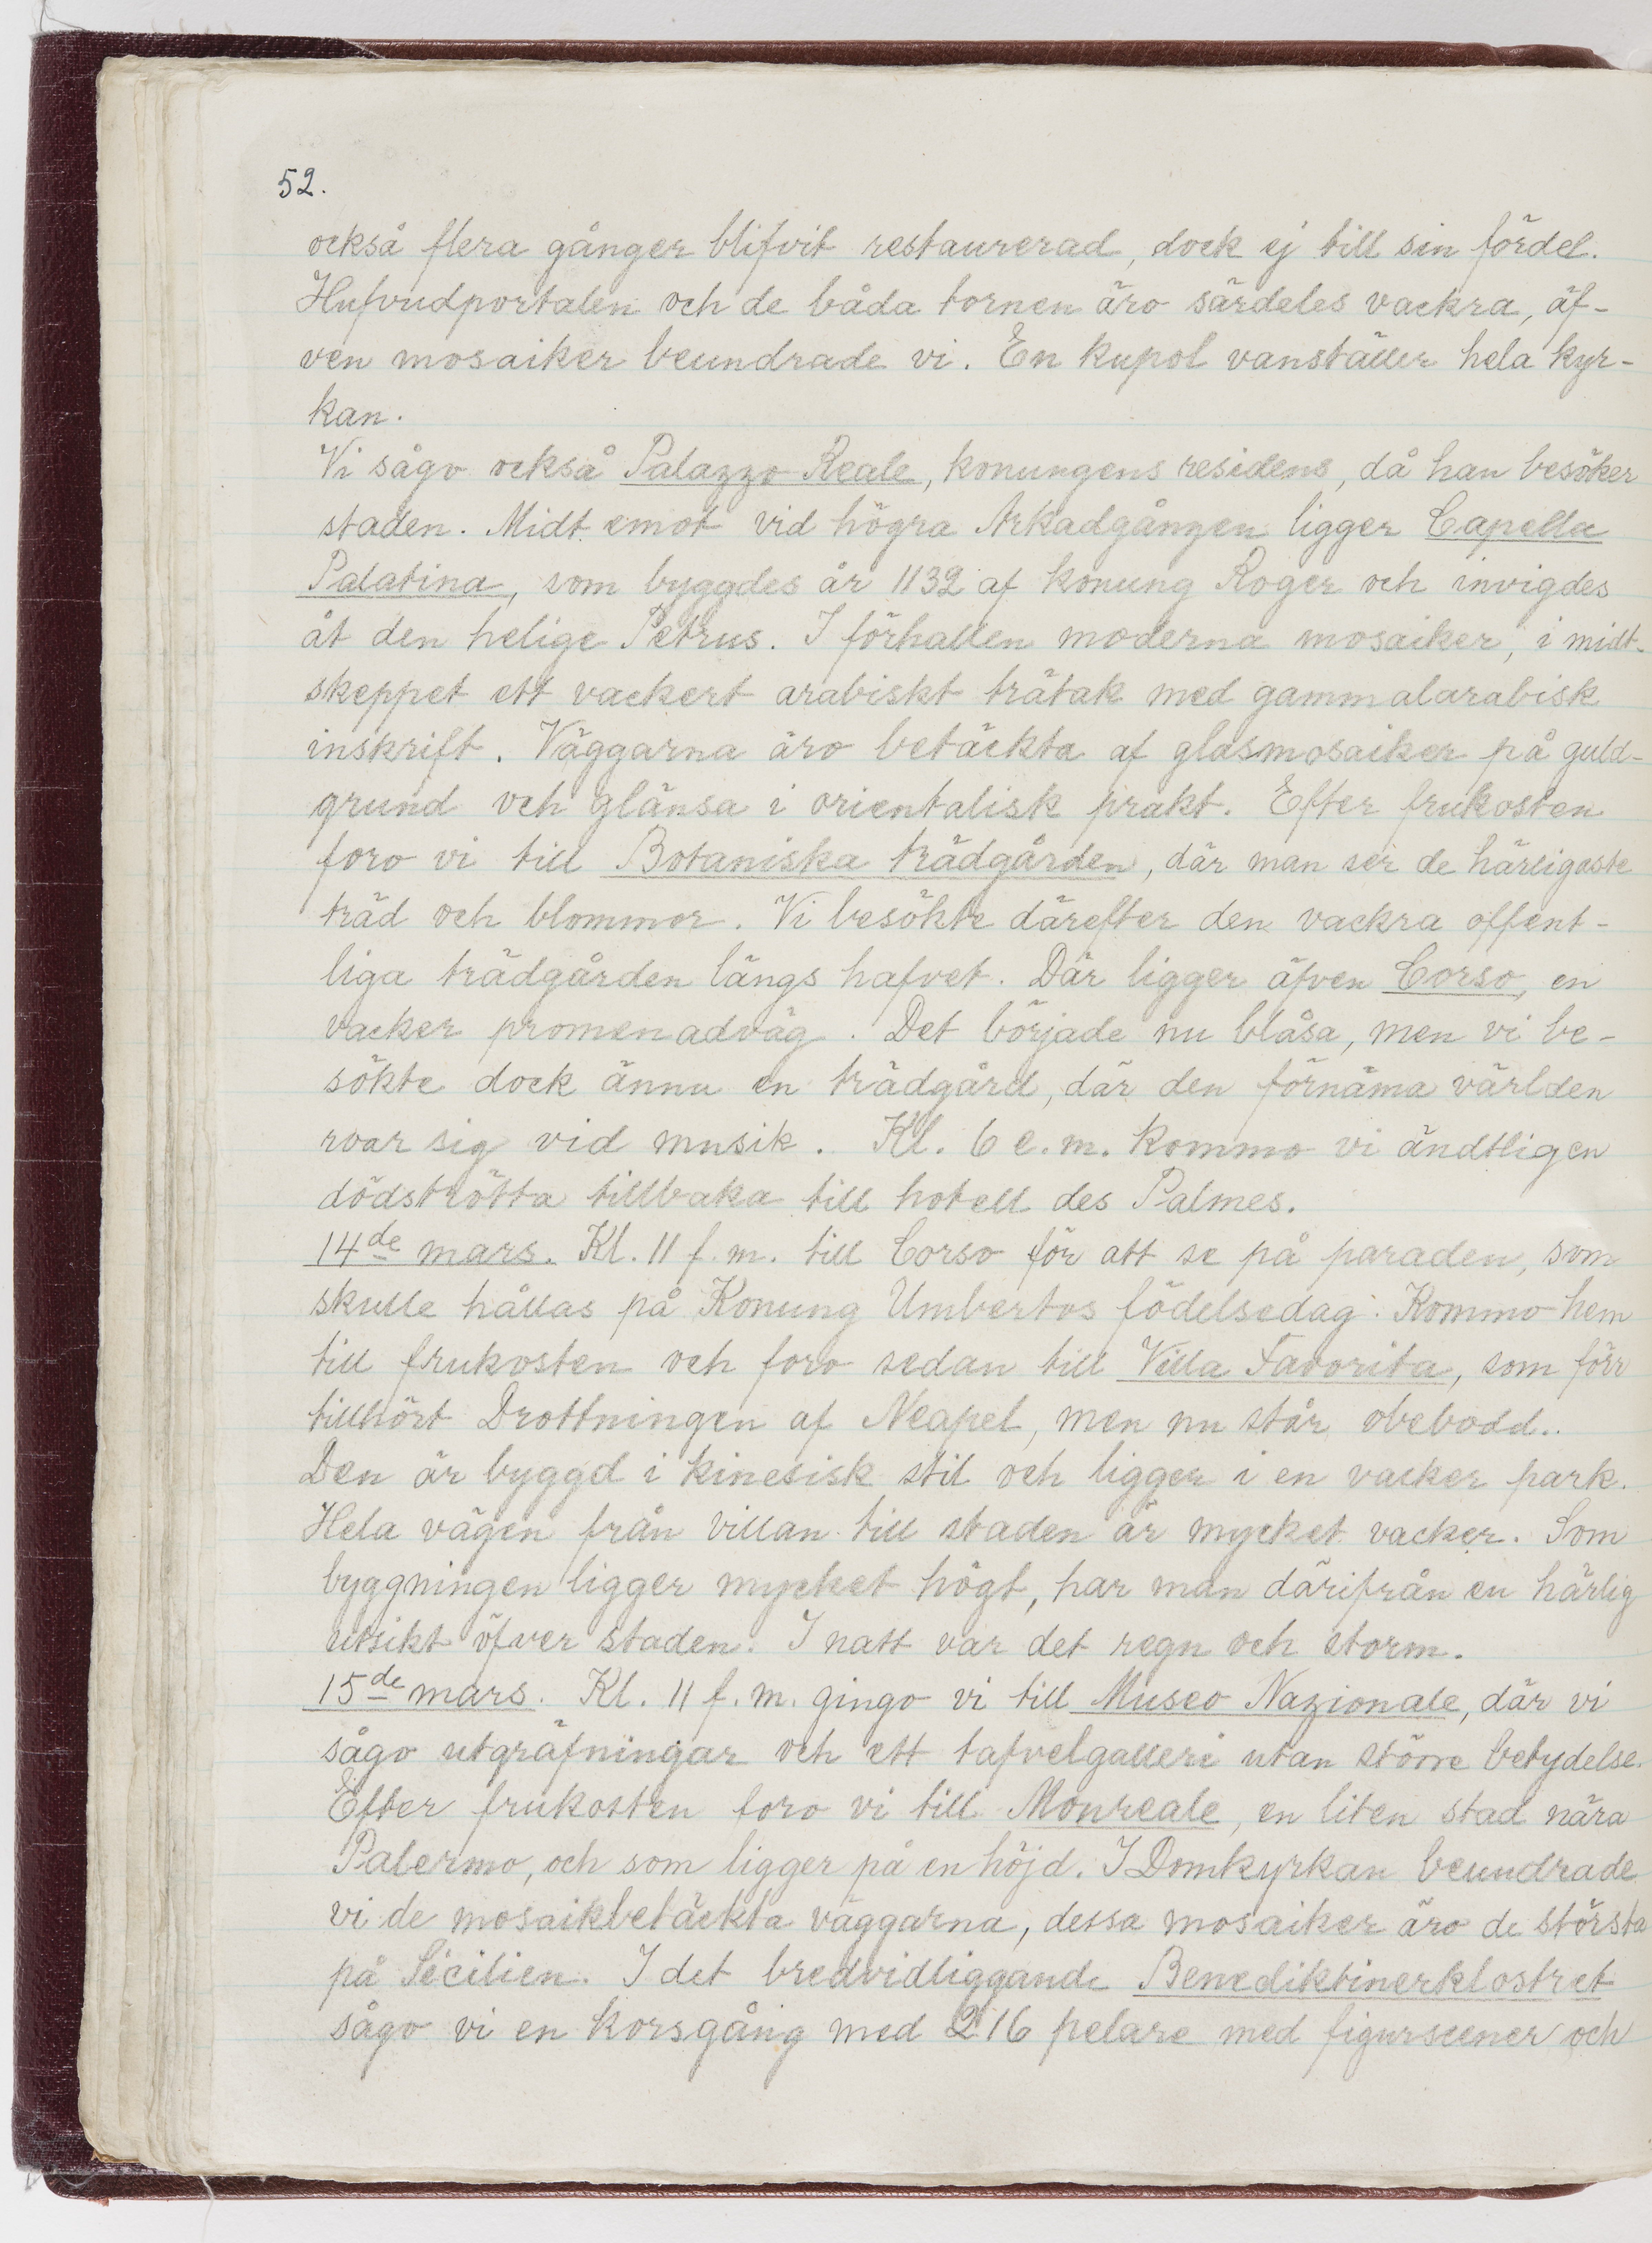 52.
också flera gånger blifvit restaurerad, dock ej till sin fördel.
Hufvudportalen och de båda tornen äro särdeles vackra, äf-
ven mosaiker beundrade vi. En kupol vanställer hela kyr-
kan.
Vi sågo också Palazzo Reale, konungens residens, då han besöker
staden. Midt emot vid högra Arkadgången ligger Capella
Palatina, som byggdes år 1132 af konung Roger och invigdes
åt den helige Petrus. I förhallen moderna mosaiker, i midt-
skeppet ett vackert arabiskt trätak med gammalarabisk
inskrift. Väggarna äro betäckta af glasmosaiker på guld-
grund och glänsa i orientalisk prakt. Efter frukosten
foro vi till Botaniska trädgården, där man ser de härligaste
träd och blommor. Vi besökte därefter den vackra offent-
liga trädgården längs hafvet. Där ligger äfven Corso, en
vacker promenadväg. Det började nu blåsa, men vi be-
sökte dock ännu en trädgård, där den förnäma världen
roar sig vid musik. Kl. 6 e.m. kommo vi ändtligen
dödströtta tillbaka till hotell des Palmes.
14de mars. Kl. 11 f.m. till Corso för att se på paraden, som
skulle hållas på Konung Umbertos födelsedag. Kommo hem
till frukosten och foro sedan till Villa Favorita, som förr
tillhört Drottningen af Neapel, men nu står obebodd..
Den är byggd i kinesisk stil och ligger i en vacker park.
Hela vägen från villan till staden är mycket vacker. Som
byggningen ligger mycket högt, har man därifrån en härlig
utsikt öfver staden. I natt var det regn och storm.
15de mars. Kl. 11 f.m. gingo vi till Museo Nazionale, där vi
sågo utgräfningar och ett tafvelgalleri utan större betydelse.
Efter frukosten foro vi till Monreale, en liten stad nära
Palermo, och som ligger på en höjd. I Domkyrkan beundrade
vi de mosaikbetäckta väggarna, dessa mosaiker äro de största
på Sicilien. I det bredvidliggande Benediktinerklostret
sågo vi en korsgång med 216 pelare med figurscener och